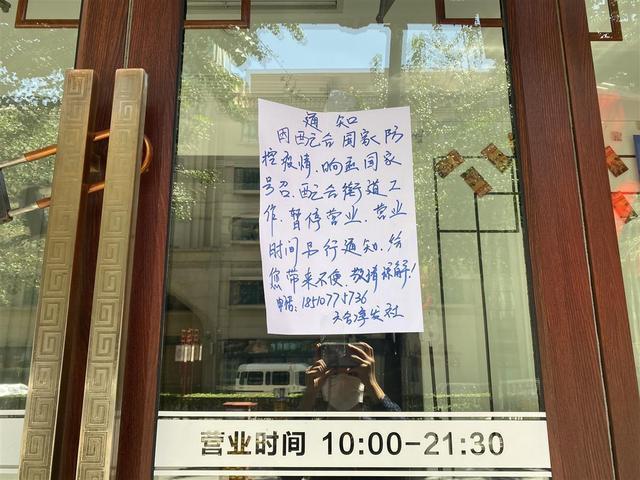 通知
因配合国家防
控疫情.响应国家
号召.配合街道工
作.暂停营业.营业
时间另行通知.给
您带来不便.敬请谅解!
电话:18510775736
营业时间 10:00-21:30